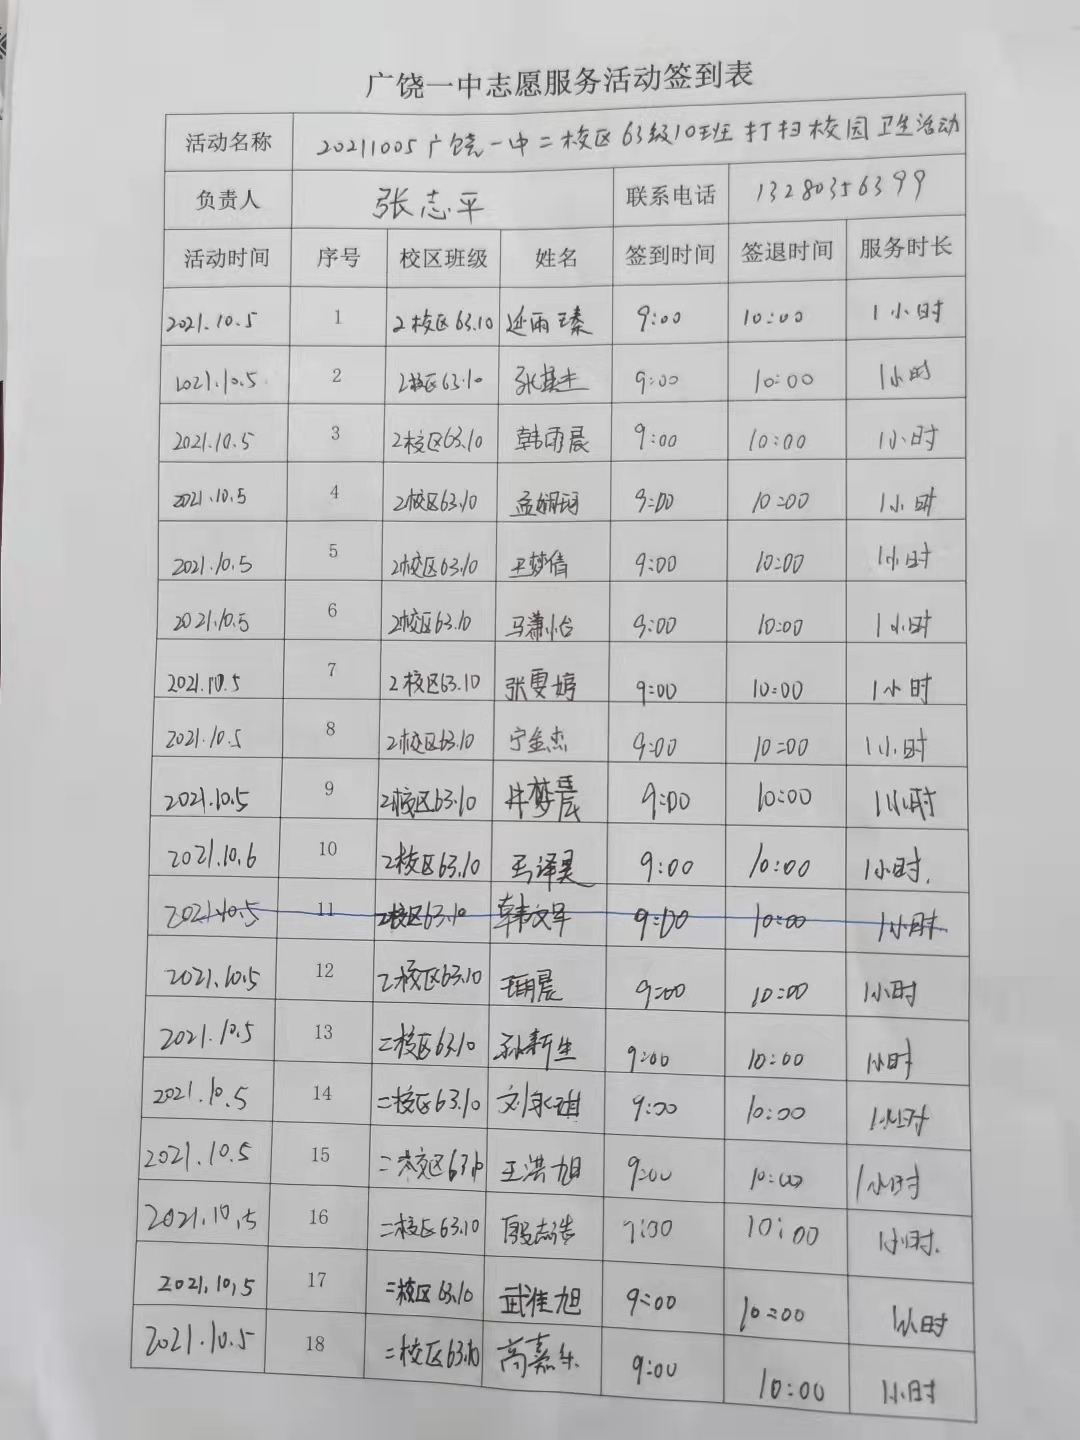 广饶一中志愿服务活动签到表
活动名称 20211005广饶一中二校区63级10班打扫校园卫生活动
负责人 张志平 联系电话 13280356399
活动时间 序号 校区班级 姓名 签到时间 签退时间 服务时长
2021.10.5 1 2校区63.10 延雨臻 9:00 10:00 1小时
2021.10.5 2 2校区63.10 张其杰 9:00 10:00 1小时
2021.10.5 3 2校区63.10 韩雨晨 9:00 10:00 1小时
2021.10.5 4 2校区63.10 孟娴珂 9:00 10:00 1小时
2021.10.5 5 2校区63.10 王梦倩 9:00 10:00 1小时
2021.10.5 6 2校区63.10 马潇怡 9:00 10:00 1小时
2021.10.5 7 2校区63.10 张雯婷 9:00 10:00 1小时
2021.10.5 8 2校区63.10 宁金杰 9:00 10:00 1小时
2021.10.5 9 2校区63.10 9:00 10:00 1小时
2021.10.6 10 2校区63.10 9:00 10:00 1小时.
2021.10.5 11 2校区63.10 韩文军 9:00 10:00 1小时
2021.10.5 12 2校区63.10 9:00 10:00 1小时
2021.10.5 13 二校区63.10 孙新生 9:00 10:00 1小时
2021.10.5 14 二校区63.10 刘永琪 9:00 10:00 1小时
2021.10.5 15 二校区63.10 王洪旭 9:00 10:00 1小时
2021.10.5 16 二校区63.10 殷志浩 9:00 10:00 1小时.
2021.10.5 17 二校区63.10 武佳旭 9:00 10:00 1小时
2021.10.5 18 二校区63.10 高嘉乐 9:00 10:00 1小时